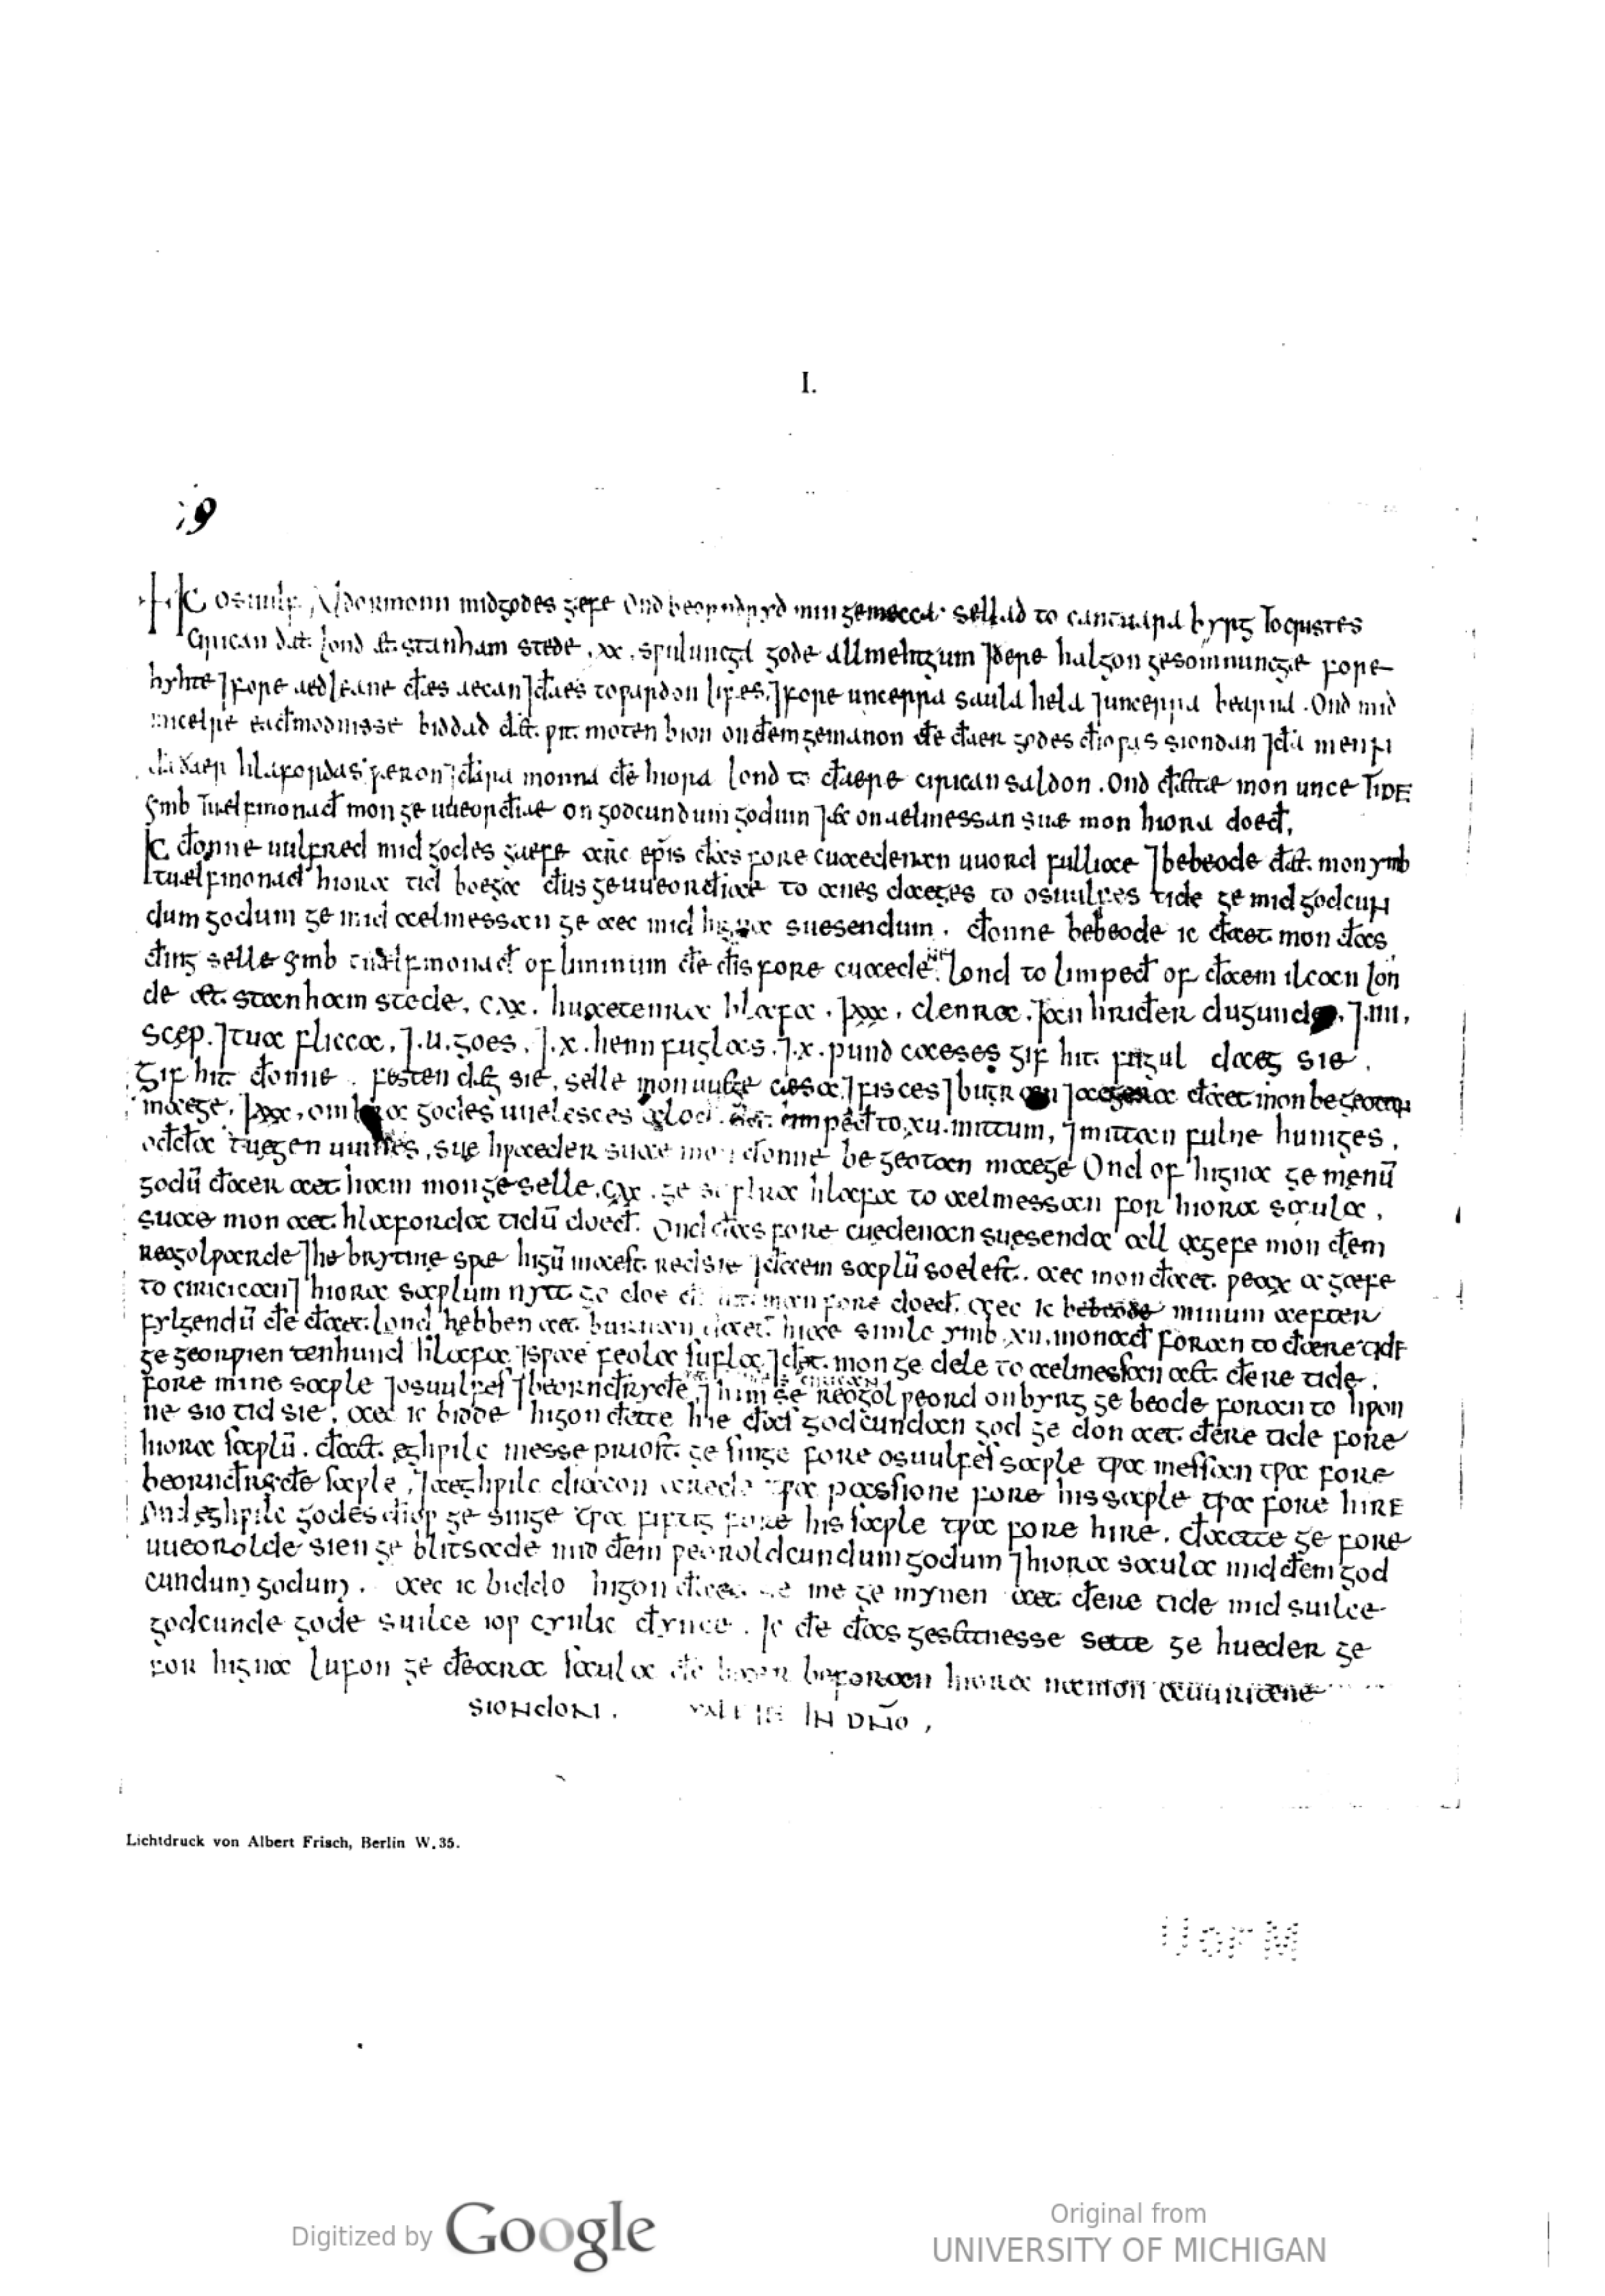 I.
19
Ic osuulf aldormonn mid godes gefe ond beornðryð min gemecca sellað to cantuara byrg to cristes
cirican ðæt lond æt stanham stede .xx. swuluncga gode allmehtgum ⁊ ðere halgon gesomnuncgæ fore
hyhte ⁊ fore aedleane ðæs aecan ⁊ ðaes towardon lifes, ⁊ fore uncerra saula hela ⁊ uncerra bearna. Ond mid
micelre eaðmodnisse biddað ðæt wit moten bion on ðem gemanon ðe ðaer godes ðiowas siondan ⁊ ða menn
ða ðaer hlafordas weron ⁊ ðara monna ðe hiora lond to ðaere cirican saldon. Ond ðættæ mon unce tide
ymb tuelfmonað mon geuueorðiae on godcundum godum ⁊ æc on aelmessan suæ mon hiora doeð.
Ic ðonne uulfred mid godes gaefe arc̄ epīs ðas forecuaedenan uuord fulliae ⁊ bebeode ðæt mon ymb
tuælfmonað hiora tid boega ðus geuueorðiae to anes daeges to osuulfes tide ge mid godcun
dum godum ge mid aelmessan ge aec mid higna suesendum. ðonne bebeode ic ðaet mon ðas
ðing selle ymb tuælfmonað of liminum ðe ðis forecuaedene lond to limpeð of ðaem ilcan lon
de æt stanham stede. cxx. huaetenra hlafa. ⁊ xxx. clenra. ⁊ an hriðer dugunde. ⁊ .iiii.
scęp. ⁊ tua flicca. ⁊ .u. goes. ⁊ .x. hennfuglas. ⁊ .x. pund caeses gif hit fuguldaeg sie.
Gif hit ðonne festendæg sie, selle mon uuęge cæsa ⁊ fisces ⁊ butran ⁊ aegera ðaet mon begeotan
maege. ⁊ xxx. ombra godes uuelesces aloð ðet limpeð to .xu. mittum, ⁊ mittan fulne huniges,
oððæ tuęgen uuines, suę hwaeder suae mon ðonne begeotan maege. Ond of higna gemęnū
godū ðaer aet ham mon geselle .cxx. gesufl ra hlafa to aelmessan for hiora saula,
suae mon aet hlaforda tidū doeð. Ond ðas forecuedenan suęsenda all agefe mon ðęm
reogolwarde ⁊ he brytnię swę higū maest red sie ⁊ ðaem sawlū soelest. aec mon ðaet weax agaefe
to ciricican ⁊ hiora sawlum nytt gedoe ðe hit man fore doeð. aec ic bebeode minum aefter
fylgendū ðe ðaet lond hębben aet burnan ðaet hiae simle ymb .xii. monað foran to ðaere tide
ge georwien tenhund hlafa ⁊ swae feola sufla ⁊ ðæt mon gedele to aelmessan aet ðere tide,
fore mine sawle ⁊ osuulfes ⁊ beornðryðe, ⁊ him se reogolweord on byrg gebeode foran to hwon
ne sio tid sie, aec ic bidde higon ðette hie ðas godcundan god gedon aet ðere tide fore
hiora sawlū. ðaet ęghwilc messepriost gesinge fore osuulfes sawle twa messan twa fore
beornðryðe sawle, ⁊ aeghwilc diacon arede twa passione fore his sawle twa fore hire
Ond ęghwilc godes ðiow gesinge twa fiftig fore his sawle twa fore hire, ðaette ge fore
uueorolde sien geblitsade mid ðem weoroldcundum godum ⁊ hiora saula mid ðem god
cundum godum. aec ic biddo higon ðaet ge me gemynen aet ðere tide mid suilce
godcunde gode suilce iow cynlic ðynce. Ic ðe ðas gesettnesse sette ge hueder ge
for higna lufon ge ðeara saula ðe haer beforaen hiora namon auuritene
siondon. VALETE IN DŃO,
Lichtdruck von Albert Frisch, Berlin W. 35.
U OF M
Digitized by Google
Original from
UNIVERSITY OF MICHIGAN